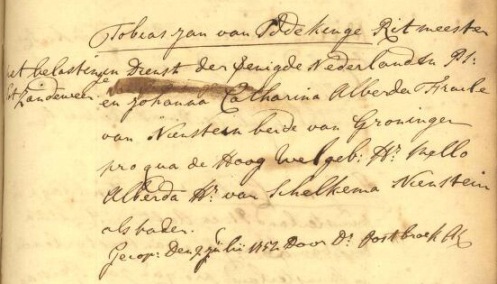 Tobias Jan van Iddekinge Ritmeester
met belasting
in Dienst der Verenigde Nederlanden
tot Zandeweer
en Johanna Catharina Alberda
van Nienstein beide van Groningen
pro qua de Hoog Welgeb: Hr. Mello
Alberda Hr. van Schelkema Nienstein
als vader.
Gecop: Den 7 Julii 1752 Door Ds. Oostbroek